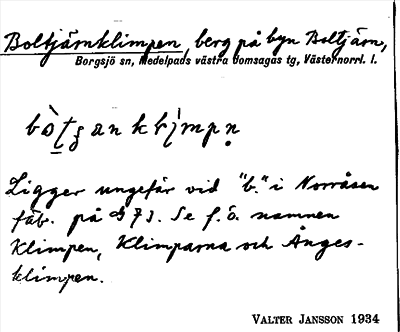 Boltjärnklimpen, berg på byn Boltjärn,
Borgsjö sn, Medelpads västra domsagas tg, Västernorrl. l.
Ligger ungefär vid "b." i Norråsen
fäb. på 73. Se f. ö. namnen
Klimpen, Klimparna och Ånges-
klimpen.
VALTER JANSSON 1934